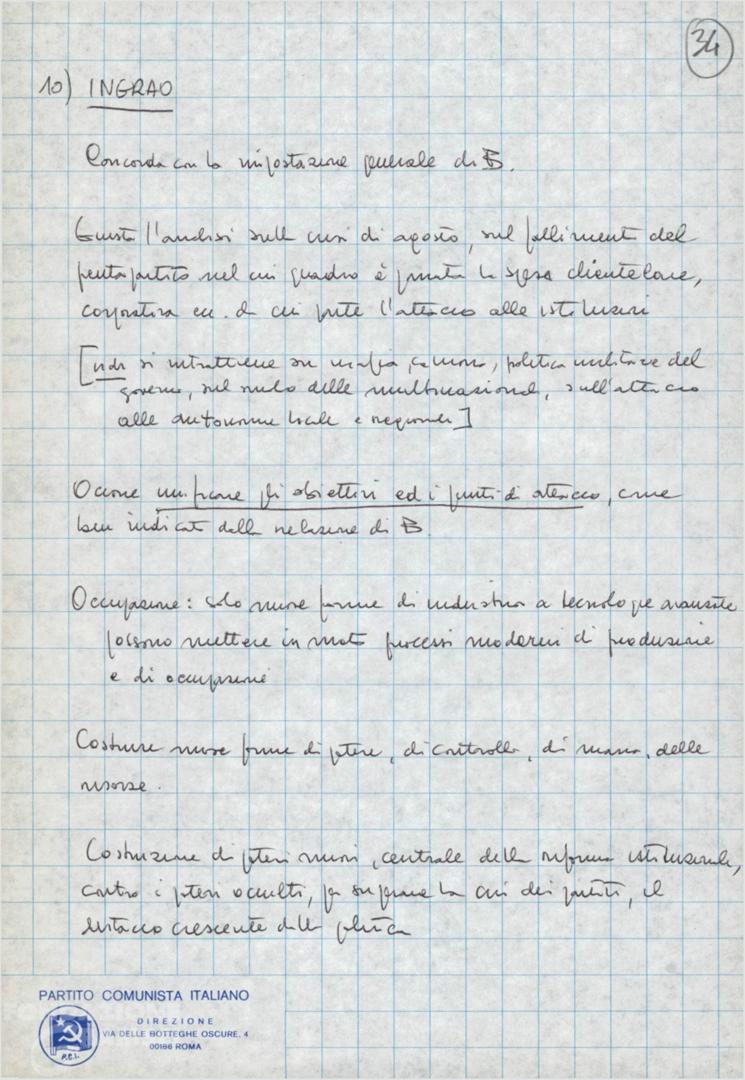 34
10) INGRAO
Concorda con la impostazione generale di B.
Giusta l'analisi sulla crisi di agosto, sul fallimento del
pentapartito nel cui quadro è la spesa clientelare,
corporativa ecc. da cui parte l'attacco alle istituzioni
[indi si intrattiene su mafia, camorra, politica militare del
governo, sul ruolo delle multinazionali, sull'attacco
alle autonomie locali e regionali]
Occorre unificare gli obiettivi ed i punti di attacco, come
ben indicati dalla relazione di B
Occupazione: solo nuove forme di industria a tecnologie avanzate
possono mettere in moto processi moderni di produzione
e di occupazione
Costruire nuove forme di potere, di controllo, di massa, delle
risorse.
Costruzione di poteri nuovi, centrale della riforma istituzionale,
contro i poteri occulti, per superare la crisi dei partiti, il
distacco crescente dalla politica
PARTITO COMUNISTA ITALIANO
DIREZIONE
VIA DELLE BOTTEGHE OSCURE, 4
00186 ROMA
P.C.I.